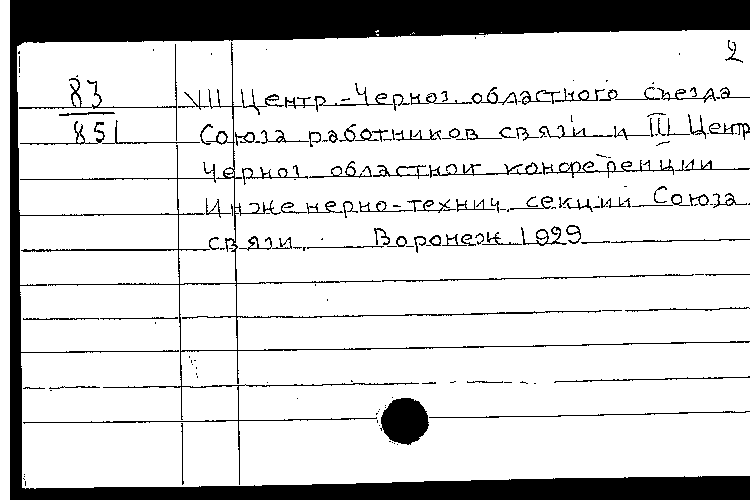 2
83
851
VII Центр.-Черноз. областного съезда
Союза работников связи и III Центр
Черноз. областной конференции
Инженерно-технич. секции Союза
связи. Воронеж 1929